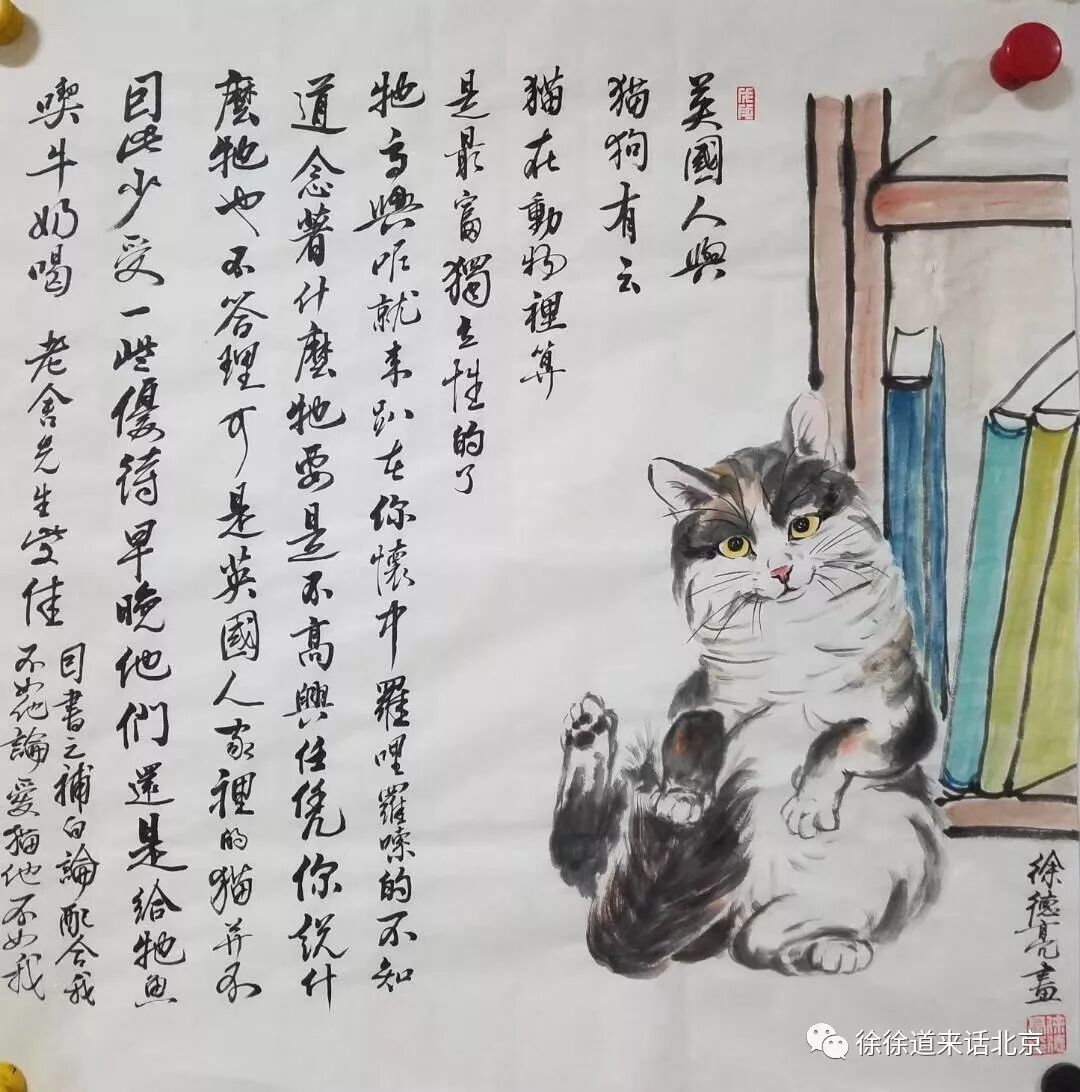 英國人與
猫狗有云
猫在動物裡算
是最富獨立性的了
牠高興呢就来趴在你懷中羅哩羅嗦的不知
道念著什麽牠要是不高興任凭你説什
麽牠也不答理可是英國人家裡的猫并不
因此少受一些優待早晚他們還是給牠魚
喫牛奶喝 老舍先生
因書之補白論配合我
不如他論愛猫他不如我
徐德亮畫
徐徐道来话北京